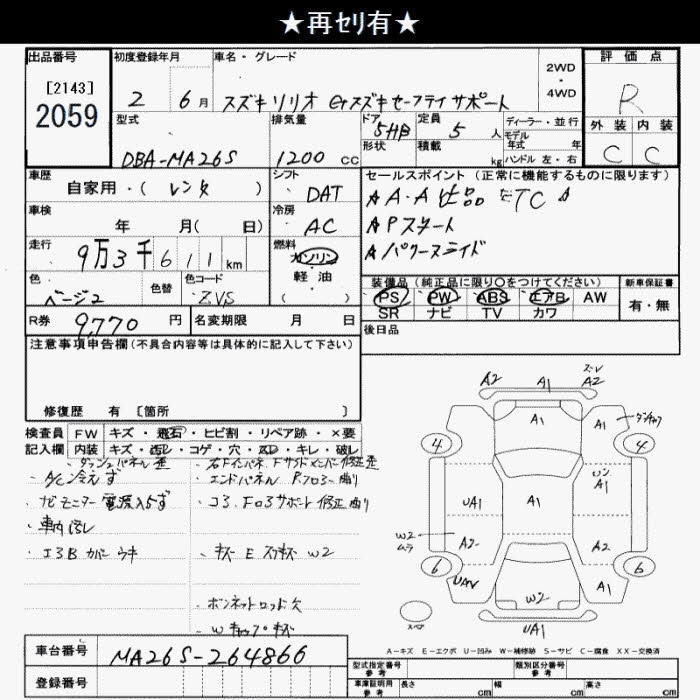 ★再セリ有★
出品番号
[2143]
2059
初度登録年月
2 6月
車名・グレード
スズキソリオ Gスズキセーフティサポート
2WD
・
4WD
評価点
R
外装 内装
C C
型式
DBA-MA26S
排気量
1200 cc
ドア 5HB
形状
定員 5 人
積載 kg
ディーラー・並行
モデル
年式 年
ハンドル 左・右
車歴
自家用・( レンタ )
シフト
DAT
車検
年 月( 日)
冷房
AC
走行
9万3千611 km
燃料
ガソリン
軽油
( )
色
ベージュ2
色替
色コード
ZVS
R券 9,770 円
名変期限 月 日
セールスポイント (正常に機能するものに限ります)
Pスタート
パワースライド
装備品 (純正品に限り〇をつけてください)
PS PW ABS エアB AW
SR ナビ TV カワ
新車保証書
有・無
後日品
注意事項申告欄(不具合内容等は具体的に記入して下さい)
修復歴 有 [箇所 ]
検査員 FW キズ・飛石・ヒビ割・リペア跡・×要
記入欄 内装 キズ・汚レ・コゲ・穴・凹・キレ・破レ
A/C冷えず
ナビモニター電源入らず
車内汚レ
エンドパネル Rフロアー曲り
コア、Fロアサポート修正曲り
キズ E W2
ボンネットロッド欠
Wキャップキズ
A2 A1 A2
A1 A1
4 4
UA1 A1 A1
W2
ムラ
A2 A2
6 6
A1
W2
UA1
スペア
A-キズ E-エクボ U-凹み W-補修跡 S-サビ C-腐食 XX-交換済
車台番号 MA26S-264866
登録番号
型式指定番号
参考
類別区分番号
参考
車庫証明用
参考
長さ cm 幅 cm 高さ cm